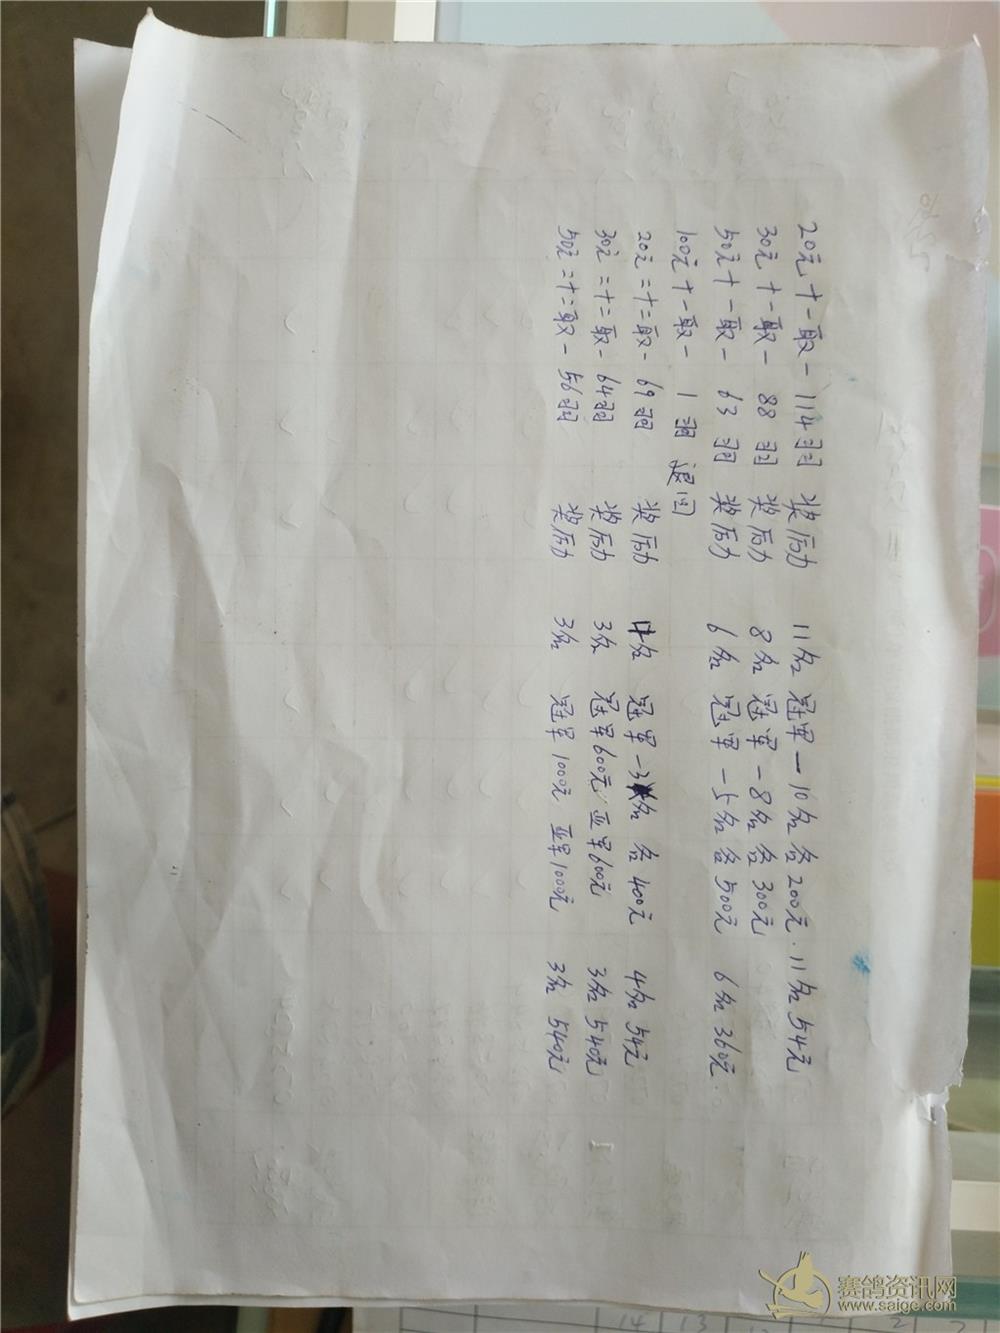 20元十一取一 114羽 奖励 11名 冠军一10名各200元.11名54元
30元十一取一 88羽 奖励 8名 冠军-8名各300元
50元十一取一 63羽 奖励 6名 冠军-5名各500元 6名360元.
100元十一取一 1羽 退回
20元二十二取一 69羽 奖励 4名 冠军-3名各400元 4名54元
30元二十二取一 64羽 奖励 3名 冠军600元 亚军600元 3名540元
50元二十二取一 56羽 奖励 3名 冠军1000元 亚军1000元 3名540元
赛鸽资讯网
www.saige.com
14 13